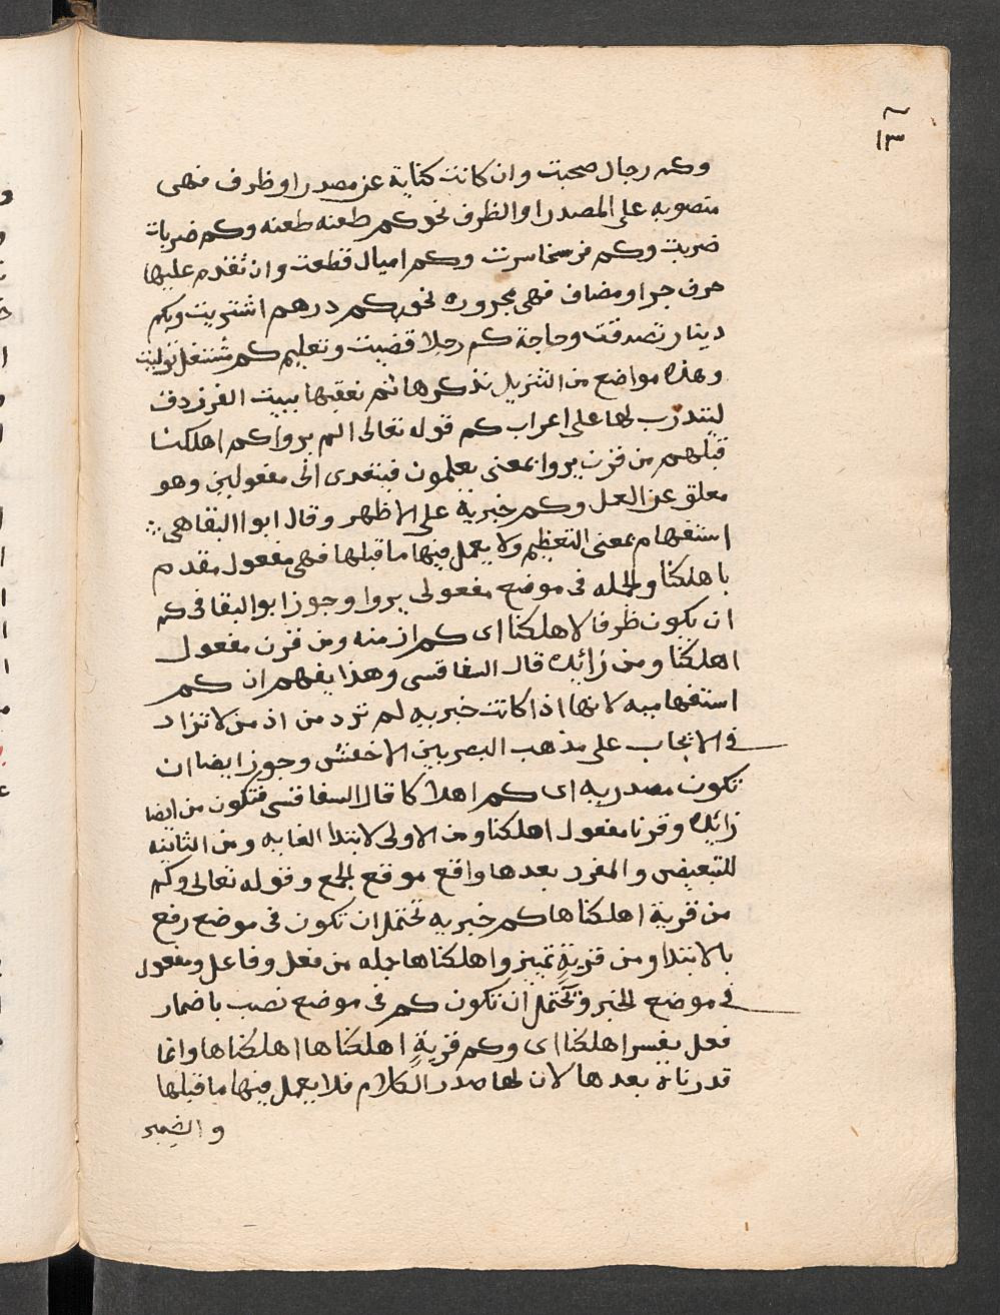 وكم رجال صحبت وان كانت كناية عن مصدر او ظرف فهى
منصوبه على المصدر او الظرف نحو كم طعنه طعنه وكم ضربات
ضربت وكم فرسخا سرت وكم اميال قطعت وان تقدم عليها
حرف جر او مضاف فهى مجروره نحو بكم درهم اشتريت وبكم
دينار تصدقت وحاجة كم رجلا قضيت وتعليم كم مشتغل توليت
وهذه مواضع من التنزيل نذكرها ثم نعقبها ببيت الفرزدق
ليتدرب لها على اعراب كم قوله تعالى الم يروا كم اهلكنا
قبلهم من قرن يروا بمعنى يعلمون فيتعدى الى مفعولين وهو
معلق عن العمل وكم خبرية على الاظهر وقال ابوا البقا هى
استفهام بمعنى التعظيم ولا يعمل فيها ما قبلها فهى مفعول مقدم
باهلكنا والجمله فى موضع مفعولى يروا وجوز ابو البقا فى كم
ان يكون ظرفا لاهلكنا اى كم ازمنه ومن قرن مفعول
اهلكنا ومن زائيده قال السفاقسى وهذا يفهم ان كم
استفهاميه لانها اذا كانت خبريه لم تزد من اذ من لا تزاد
فى الايجاب على مذهب البصريين الا خفش وجوز ايضا ان
تكون مصدريه اى كم اهلاكا قال السفاقسى فتكون من ايضا
زائيده وقرنا مفعول اهلكنا ومن الاولى لابتدا الغايه ومن الثانيه
للتبعيض والمفرد بعدها واقع موقع الجمع وقوله تعالى وكم
من قرية اهلكناها كم خبريه تحتمل ان تكون فى موضع رفع
بالابتدا ومن قريةٍ تمييز واهلكناها جمله من فعل وفاعل ومفعول
فى موضع الخبر وتحتمل ان تكون كم فى موضع نصب باضمار
فعل يفسر اهلكنا اى وكم قريةٍ اهلكناها اهلكناها وانما
قدرناه بعدها لان لها صدر الكلام فلا يعمل فيها ما قبلها
والضمير